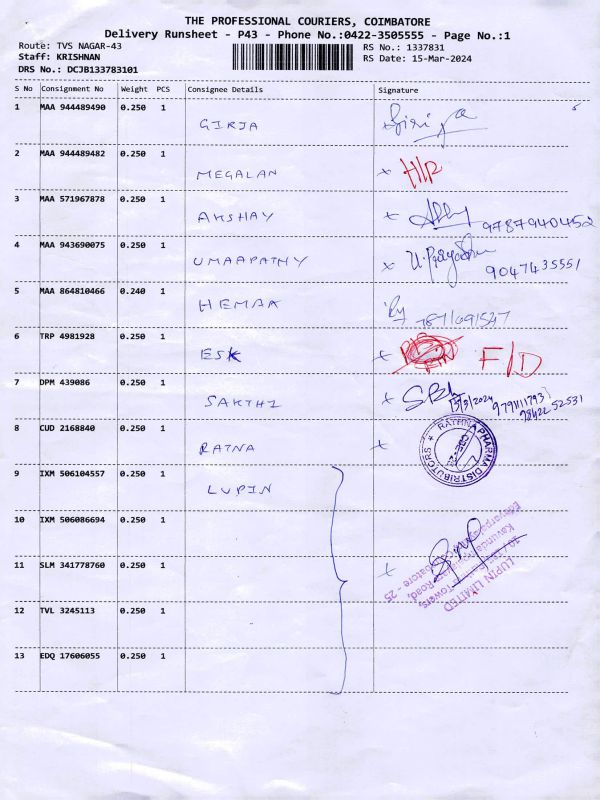 THE PROFESSIONAL COURIERS, COIMBATORE
Delivery Runsheet - P43 - Phone No.:0422-3505555 - Page No.:1
Route: TVS NAGAR-43 RS No.: 1337831
Staff: KRISHNAN RS Date: 15-Mar-2024
DRS No.: DCJB133783101
S No Consignment No Weight PCS Consignee Details Signature
1 MAA 944489490 0.250 1 GIRJA
2 MAA 944489482 0.250 1 MEGALAN x H/P
3 MAA 571967878 0.250 1 AKSHAY x 9787940452
4 MAA 943690075 0.250 1 UMAAPATHY x 9047435551
5 MAA 864810466 0.240 1 HEMAA
6 TRP 4981928 0.250 1 ESK x F/D
7 DPM 439086 0.250 1 SAKTHI x 13/3/2024
8 CUD 2168840 0.250 1 RATNA x
RATHNA PHARMA DISTRIBUTORS
9 IXM 506104557 0.250 1 LUPIN
10 IXM 506086694 0.250 1
11 SLM 341778760 0.250 1 x
LUPIN LIMITED
12 TVL 3245113 0.250 1
13 EDQ 17606055 0.250 1